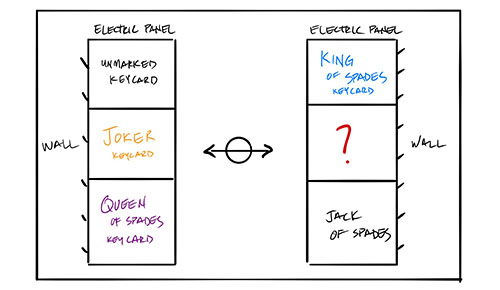 ELECTRIC PANEL
UNMARKED
KEYCARD
JOKER
KEYCARD
QUEEN
OF SPADES
KEYCARD
WALL
ELECTRIC PANEL
KING
OF SPADES
KEYCARD
?
JACK
OF SPADES
WALL